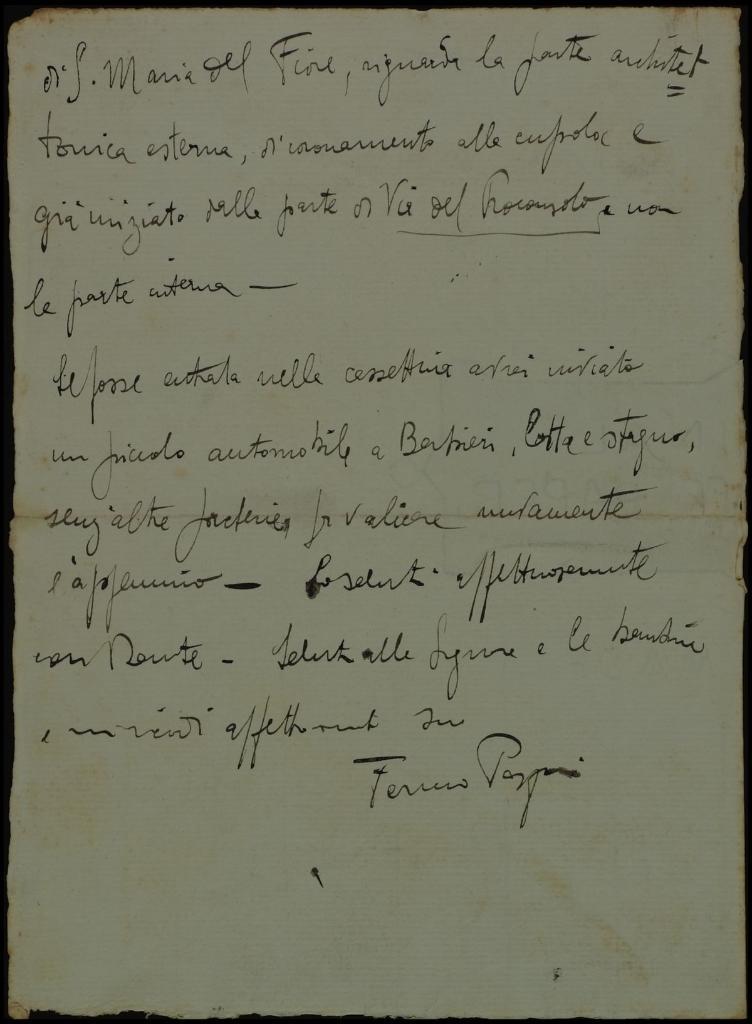 di S. Maria del Fiore, riguarda la parte architet
tonica esterna, di coronamento alla cupola e
già iniziato dalla parte di Via del Proconsolo e non
la parte interna —
Se fosse entrata nella cassettina avrei inviato
un piccolo automobile a Barbieri, Cotta e stagno,
senz'altre per valicare nuovamente
l'appennino — La saluti affettuosamente
con — Saluti alle Signore e le bambine
e mi ricordi suo
Ferruccio